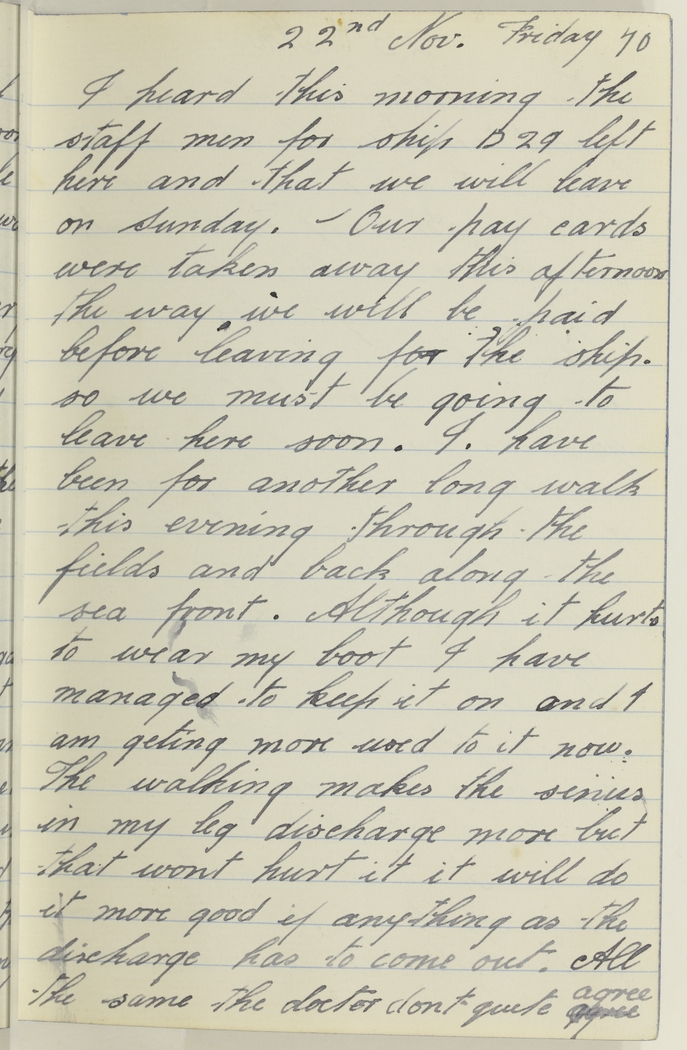 22nd Nov. Friday 70
I heard this morning the
staff men for ship D 29 left
here and that we will leave
on Sunday. - Our pay cards
were taken away this afternoon
the way we will be paid
before leaving for the ship.
so we must be going to
leave here soon. I. have
been for another long walk
this evening through the
fields and back along the
sea front. Although it hurts
to wear my boot I have
managed to keep it on and I
am geting more used to it now.
The walking makes the sinies
in my leg discharge more but
that wont hurt it it will do
it more good if anything as the
discharge has to come out. All
the same the doctor dont quite agree